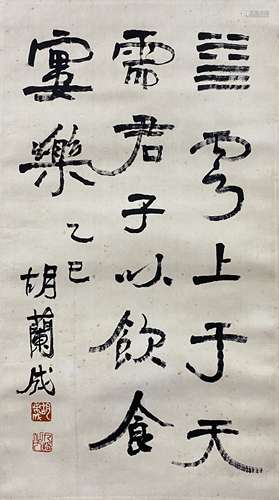 ䷄雲上于天
需君子以飲食
宴樂
乙巳
胡蘭成